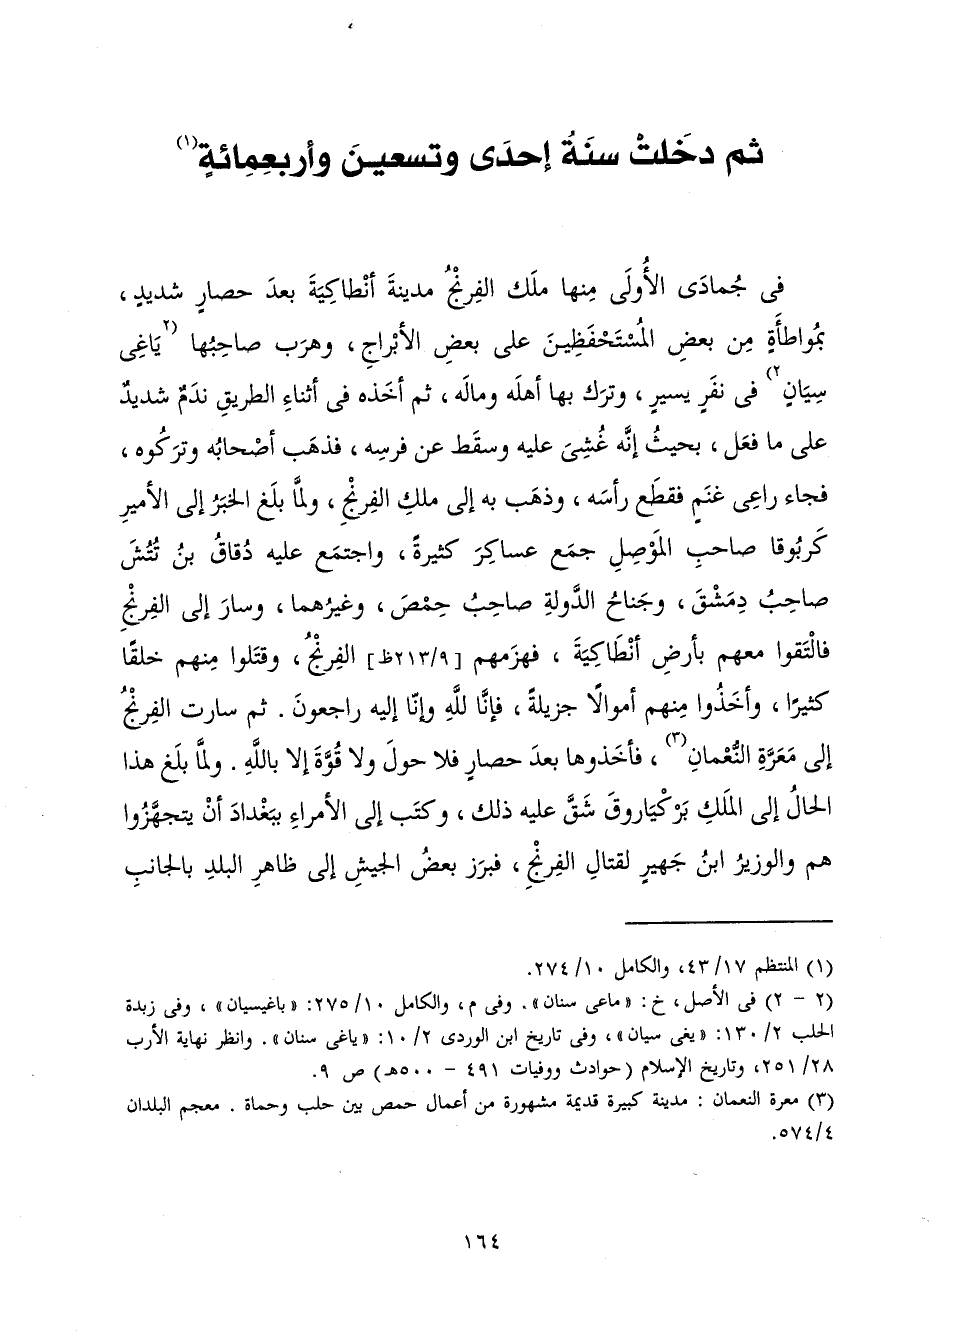 ثم دخَلتْ سنَةُ إحدَى وتسعينَ وأربعِمِائةٍ(١)
فى جُمادَى الأُولَى مِنها ملَك الفِرنْجُ مدينةَ أنْطاكِيَةَ بعدَ حصارٍ شديدٍ ،
بمُواطأَةٍ مِن بعضِ المُسْتَحْفَظِينَ على بعضِ الأبْراجِ ، وهرَب صاحِبُها (٢يَاغِى
سِيَانٍ٢) فى نفَرٍ يسيرٍ ، وترَك بها أهلَه ومالَه ، ثم أخَذه فى أثناءِ الطريقِ ندَمٌ شديدٌ
على ما فعَل ، بحيثُ إنَّه غُشِىَ عليه وسقَط عن فرسِه ، فذهَب أصْحابُه وترَكُوه ،
فجاء راعِى غنَمٍ فقطَع رأسَه ، وذهَب به إلى ملكِ الفِرنْجِ ، ولمَّا بلَغ الخبَرُ إلى الأميرِ
كَربُوقا صاحبِ المَوْصِلِ جمَع عساكِرَ كثيرةً ، واجتمَع عليه دُقاقُ بنُ تُتُشَ
صاحِبُ دِمَشْقَ ، وجَناحُ الدَّولةِ صاحِبُ حِمْصَ ، وغيرُهما ، وسارَ إلى الفِرنْجِ
فالْتَقوا معهم بأرضِ أنْطَاكِيَةَ ، فهزَمهم [٢١٣/٩ظ] الفِرنْجُ ، وقتَلوا مِنهم خلقًا
كثيرًا ، وأخَذُوا مِنهم أموالًا جزيلةً ، فإنَّا للَّهِ وإنّا إليه راجعونَ . ثم سارت الفِرنْجُ
إلى مَعَرَّةِ النُّعْمانِ(٣) ، فأخَذوها بعدَ حصارٍ فلا حولَ ولا قُوَّةَ إلا باللَّهِ . ولمَّا بلَغ هذا
الحالُ إلى الملَكِ بَرْكْيَاروقَ شَقَّ عليه ذلك ، وكتَب إلى الأمراءِ ببَغْدادَ أنْ يتجهَّزُوا
هم والوزيرُ ابنُ جَهيرٍ لقتالِ الفِرنْجِ ، فبرَز بعضُ الجيشِ إلى ظاهرِ البلدِ بالجانبِ
(١) المنتظم ٤٣/١٧، والكامل ٢٧٤/١٠.
(٢ - ٢) فى الأصل ، خ : «ماعى سنان» . وفى م ، والكامل ٢٧٥/١٠: «باغيسيان» ، وفى زبدة
الحلب ١٣٠/٢: «يغى سيان» ، وفى تاريخ ابن الوردى ١٠/٢: «ياغى سنان» . وانظر نهاية الأرب
٢٥١/٢٨، وتاريخ الإسلام (حوادث ووفيات ٤٩١ - ٥٠٠هـ) ص ٩.
(٣) معرة النعمان : مدينة كبيرة قديمة مشهورة من أعمال حمص بين حلب وحماة . معجم البلدان
٥٧٤/٤.
١٦٤